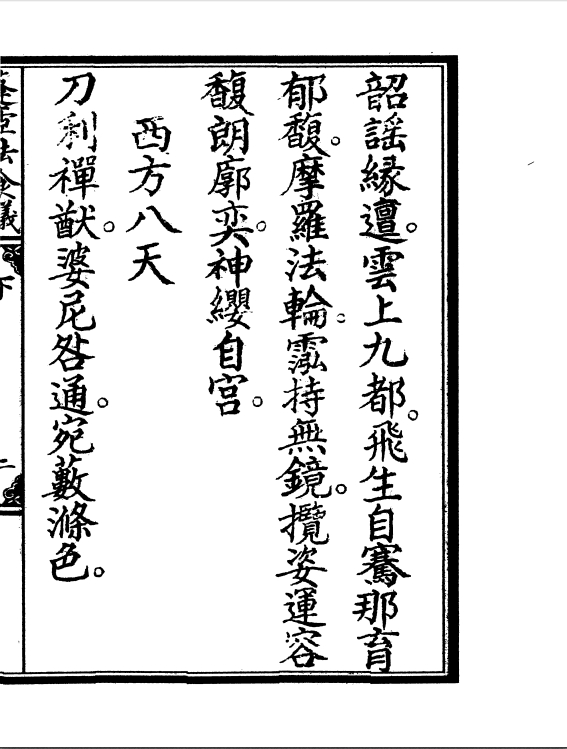 韶謡縁邅。雲上九都。飛生自騫那育
郁馥。摩羅法輪。霐持無鏡。攬姿運容
馥朗廓奕。神纓自宫。
西方八天
刀利禪猷。婆尼咎通。宛藪滌色。